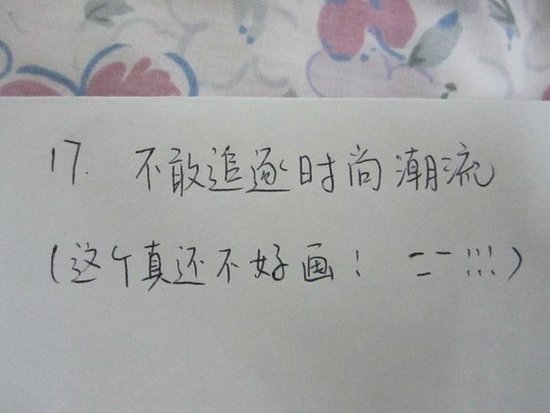 17. 不敢追逐时尚潮流
(这个真还不好画! 二一 !!!)